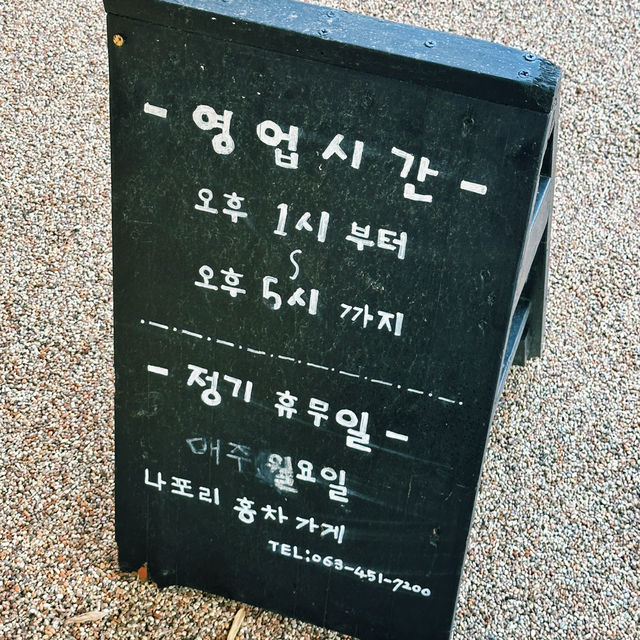 - 영업시간 -
오후 1시 부터
~
오후 5시 까지
- 정기 휴무일 -
매주 월요일
나포리 홍차가게
TEL:063-451-7200